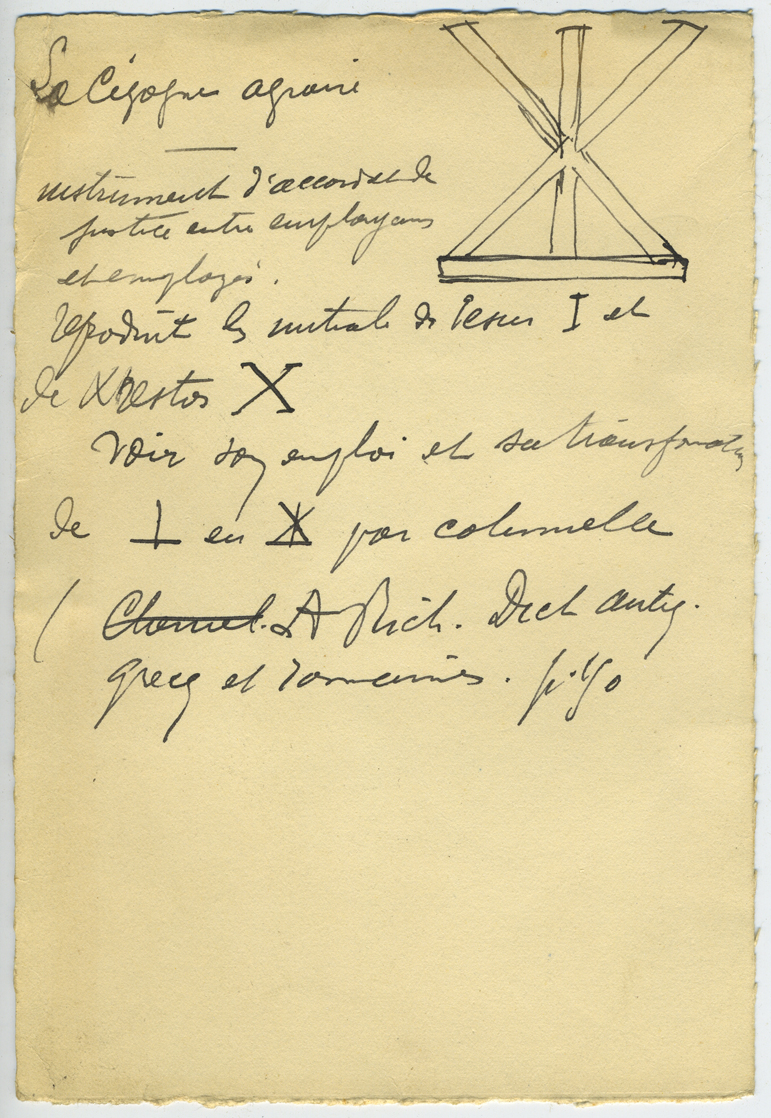 La Cigogne agraire
instrument d'accord et de
justice entre employeurs
et employés.
reproduit les initiales de Iesus I et
de Xhrestos X
Voir son emploi et sa transformation
de ⊥ en X par columelle
( Chomel. A Rich. Dict antiq.
grecq et romaines. p.